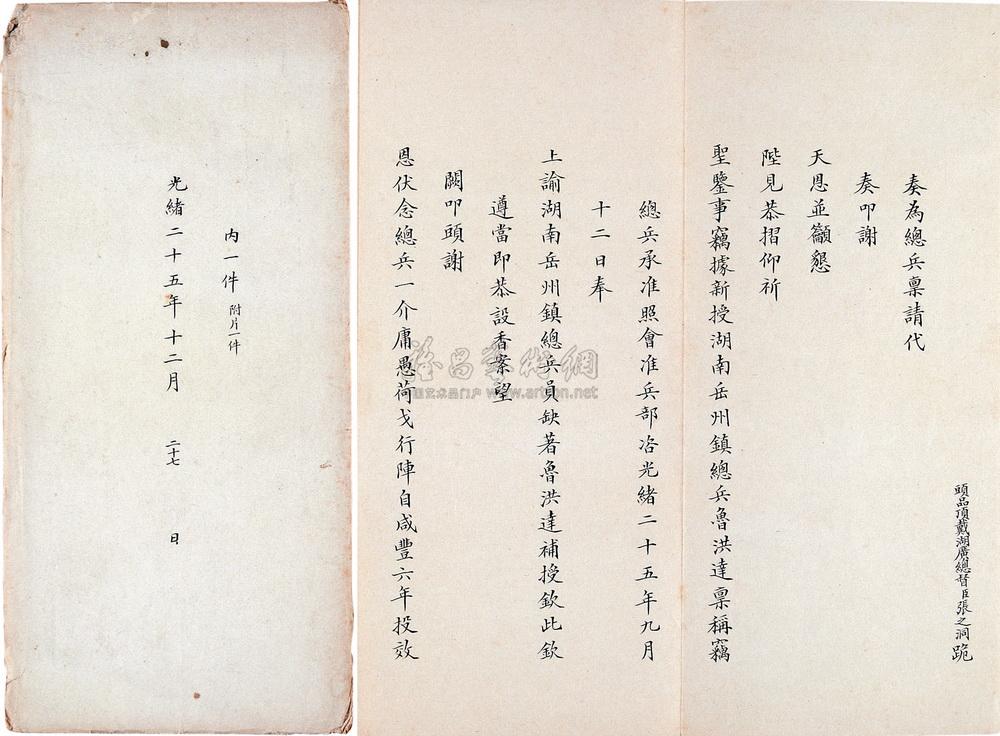 頭品頂戴湖廣總督臣張之洞跪
奏為總兵稟請代
奏叩謝
天恩並籲懇
陛見恭摺仰祈
聖鑒事竊據新授湖南岳州鎮總兵魯洪達稟稱竊
總兵承准照會准兵部咨光緒二十五年九月
十二日奉
上諭湖南岳州鎮總兵員缺著魯洪達補授欽此欽
遵當即恭設香案望
闕叩頭謝
恩伏念總兵一介庸愚荷戈行陣自咸豐六年投效
內一件 附片一件
光緒二十五年十二月 二十七 日
www.artron.net